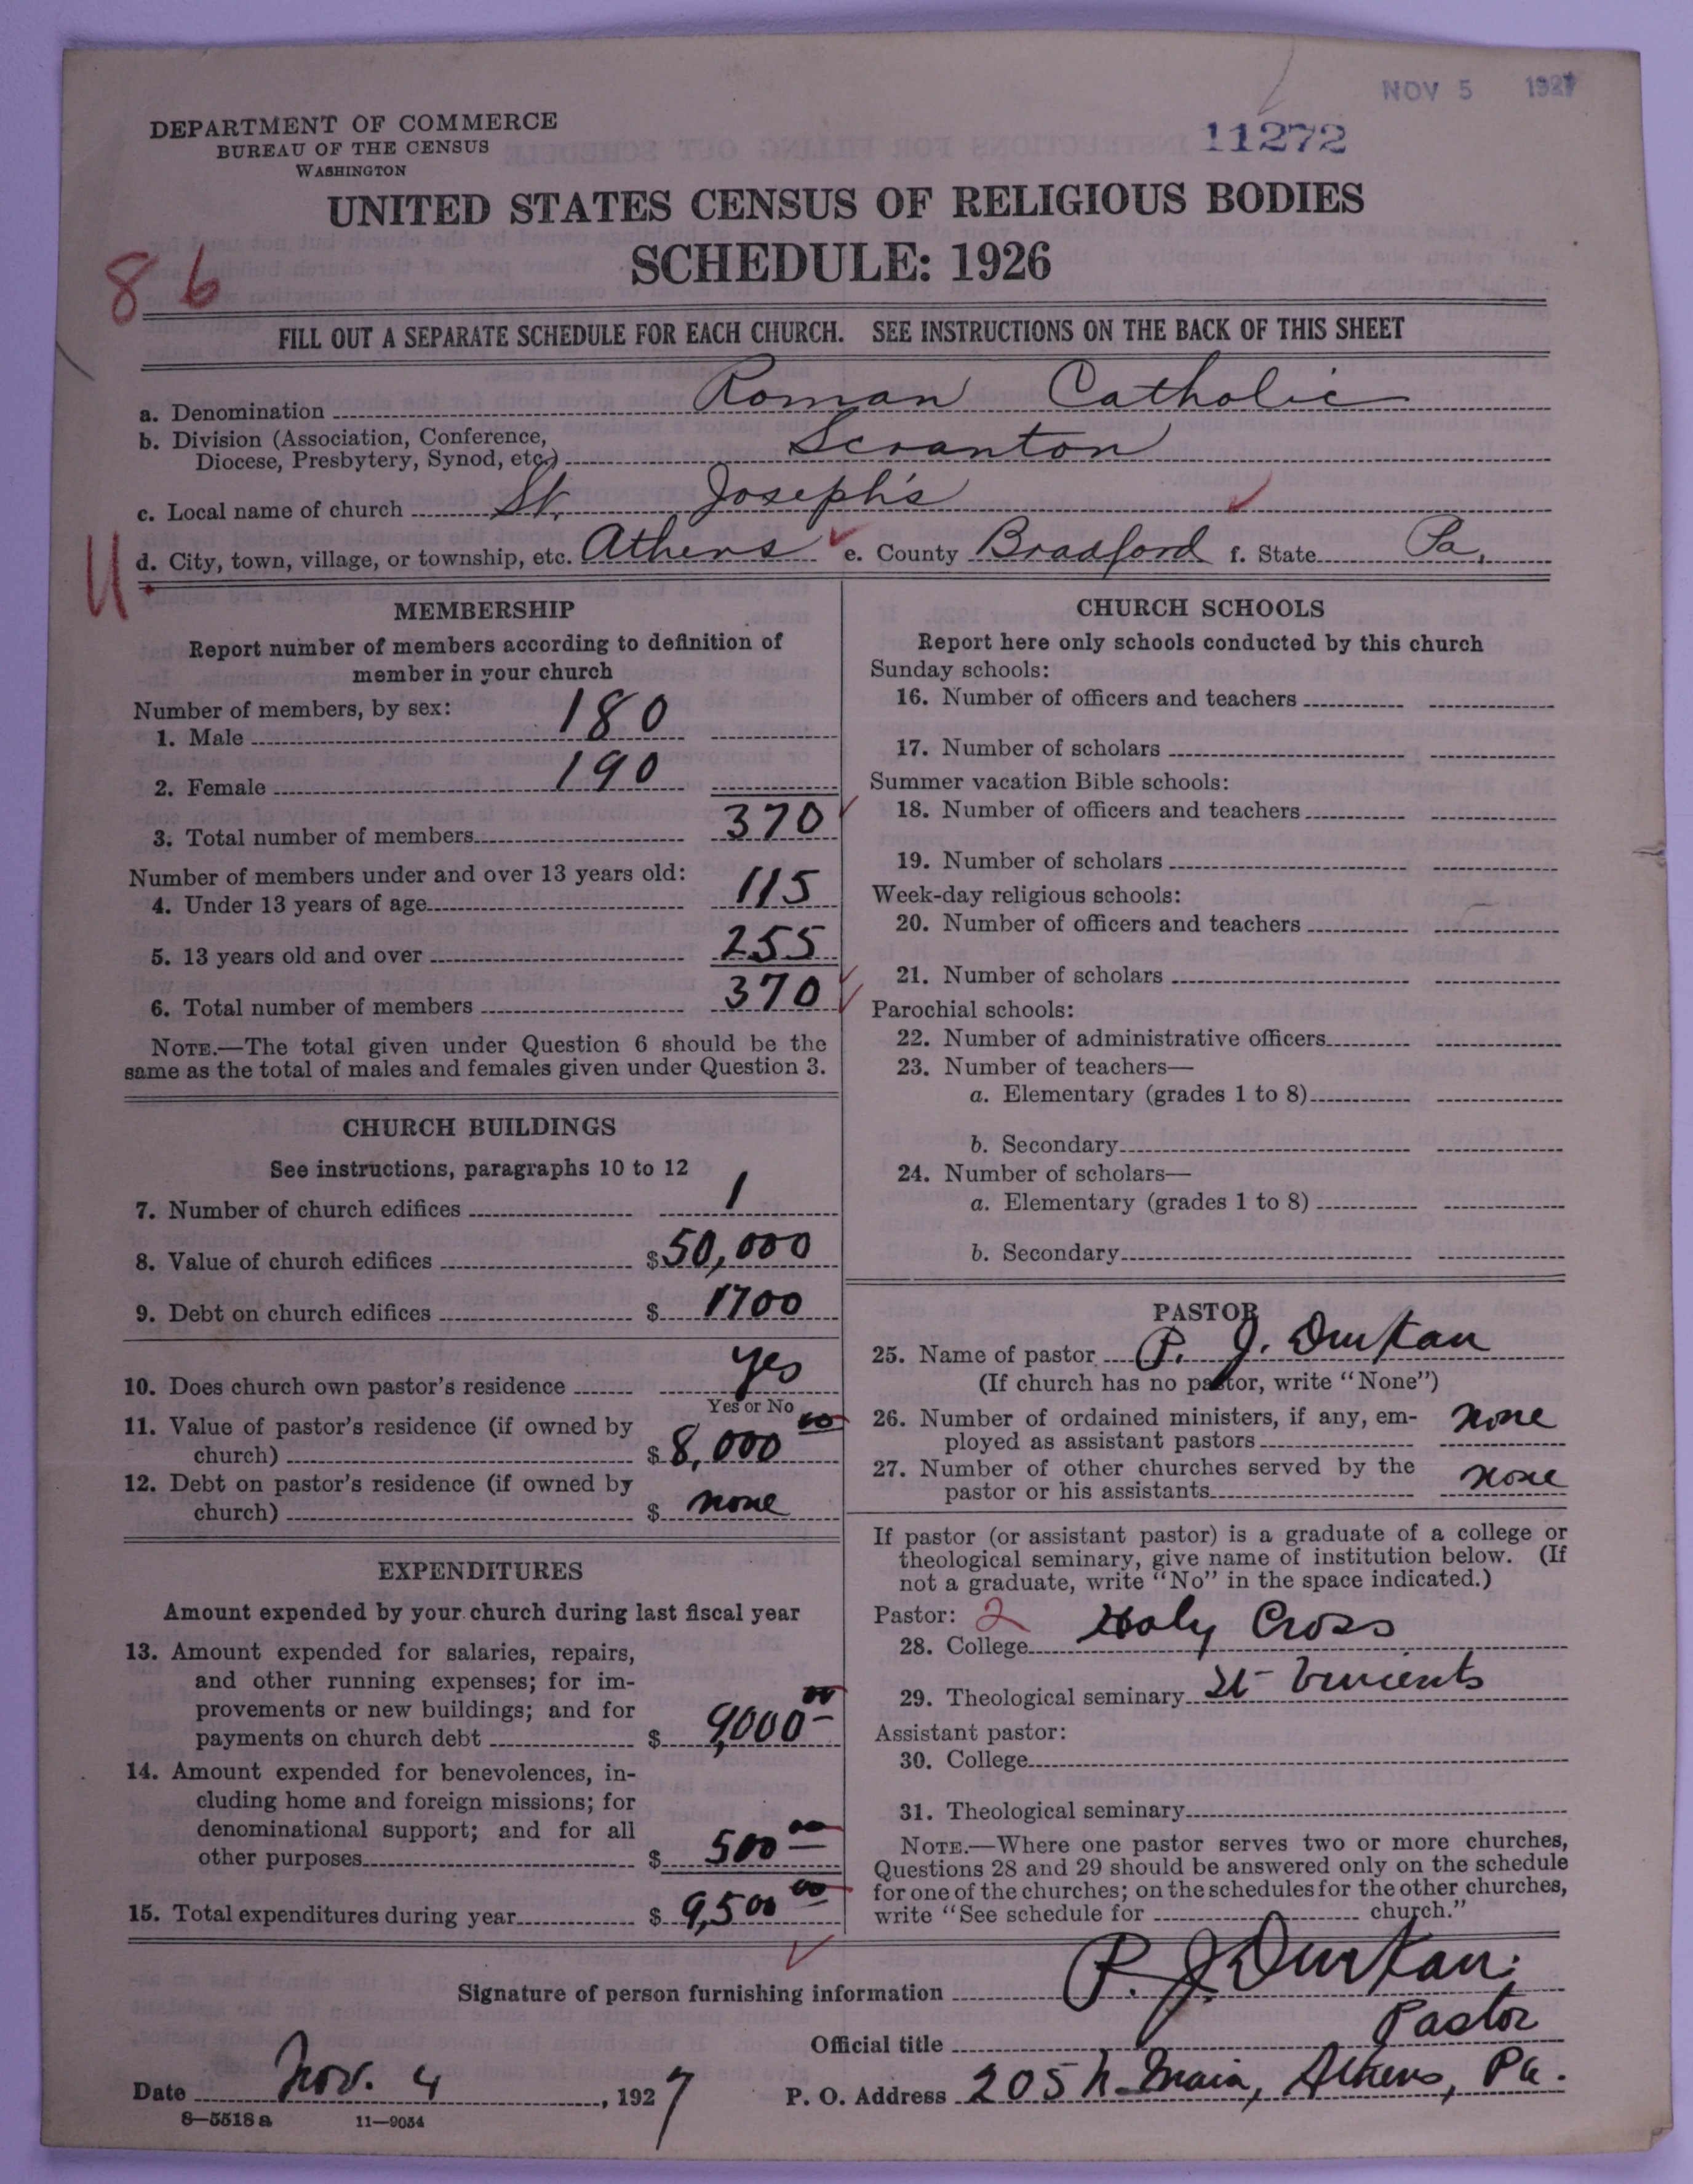 NOV 5 1927
11272
DEPARTMENT OF COMMERCE
BUREAU OF THE CENSUS
WASHINGTON
UNITED STATES CENSUS OF RELIGIOUS BODIES
SCHEDULE: 1926
86
FILL OUT A SEPARATE SCHEDULE FOR EACH CHURCH. SEE INSTRUCTIONS ON THE BACK OF THIS SHEET
a. Denomination Roman Catholic
b. Division (Association, Conference,
Diocese, Presbytery, Synod, etc.) Scranton
c. Local name of church St. Joseph's
U d. City, town, village, or township, etc. Athens e. County Bradford f. State Pa.
MEMBERSHIP
Report number of members according to definition of
member in your church
Number of members, by sex:
1. Male 180
2. Female 190
3. Total number of members 370
Number of members under and over 13 years old:
4. Under 13 years of age 115
5. 13 years old and over 255
6. Total number of members 370
NOTE.—The total given under Question 6 should be the
same as the total of males and females given under Question 3.
CHURCH BUILDINGS
See instructions, paragraphs 10 to 12
7. Number of church edifices 1
8. Value of church edifices $50,000
9. Debt on church edifices $ 1700
10. Does church own pastor's residence yes
Yes or No
11. Value of pastor's residence (if owned by
church) $8,000 00
12. Debt on pastor's residence (if owned by
church) $ none
EXPENDITURES
Amount expended by your church during last fiscal year
13. Amount expended for salaries, repairs,
and other running expenses; for im-
provements or new buildings; and for
payments on church debt $ 9,000 00
14. Amount expended for benevolences, in-
cluding home and foreign missions; for
denominational support; and for all
other purposes $ 500 00
15. Total expenditures during year $ 9,500 00
CHURCH SCHOOLS
Report here only schools conducted by this church
Sunday schools:
16. Number of officers and teachers
17. Number of scholars
Summer vacation Bible schools:
18. Number of officers and teachers
19. Number of scholars
Week-day religious schools:
20. Number of officers and teachers
21. Number of scholars
Parochial schools:
22. Number of administrative officers
23. Number of teachers—
a. Elementary (grades 1 to 8)
b. Secondary
24. Number of scholars—
a. Elementary (grades 1 to 8)
b. Secondary
PASTOR
25. Name of pastor P. J. Durkan
(If church has no pastor, write "None")
26. Number of ordained ministers, if any, em-
ployed as assistant pastors none
27. Number of other churches served by the
pastor or his assistants none
If pastor (or assistant pastor) is a graduate of a college or
theological seminary, give name of institution below. (If
not a graduate, write "No" in the space indicated.)
Pastor: 2
28. College Holy Cross
29. Theological seminary St Vincents
Assistant pastor:
30. College
31. Theological seminary
NOTE.—Where one pastor serves two or more churches,
Questions 28 and 29 should be answered only on the schedule
for one of the churches; on the schedules for the other churches,
write "See schedule for church."
Signature of person furnishing information P. J. Durkan
Official title Pastor
Date Nov. 4, 1927 P. O. Address 205 N. Main, Athens, Pa.
8—5518 a 11—9054